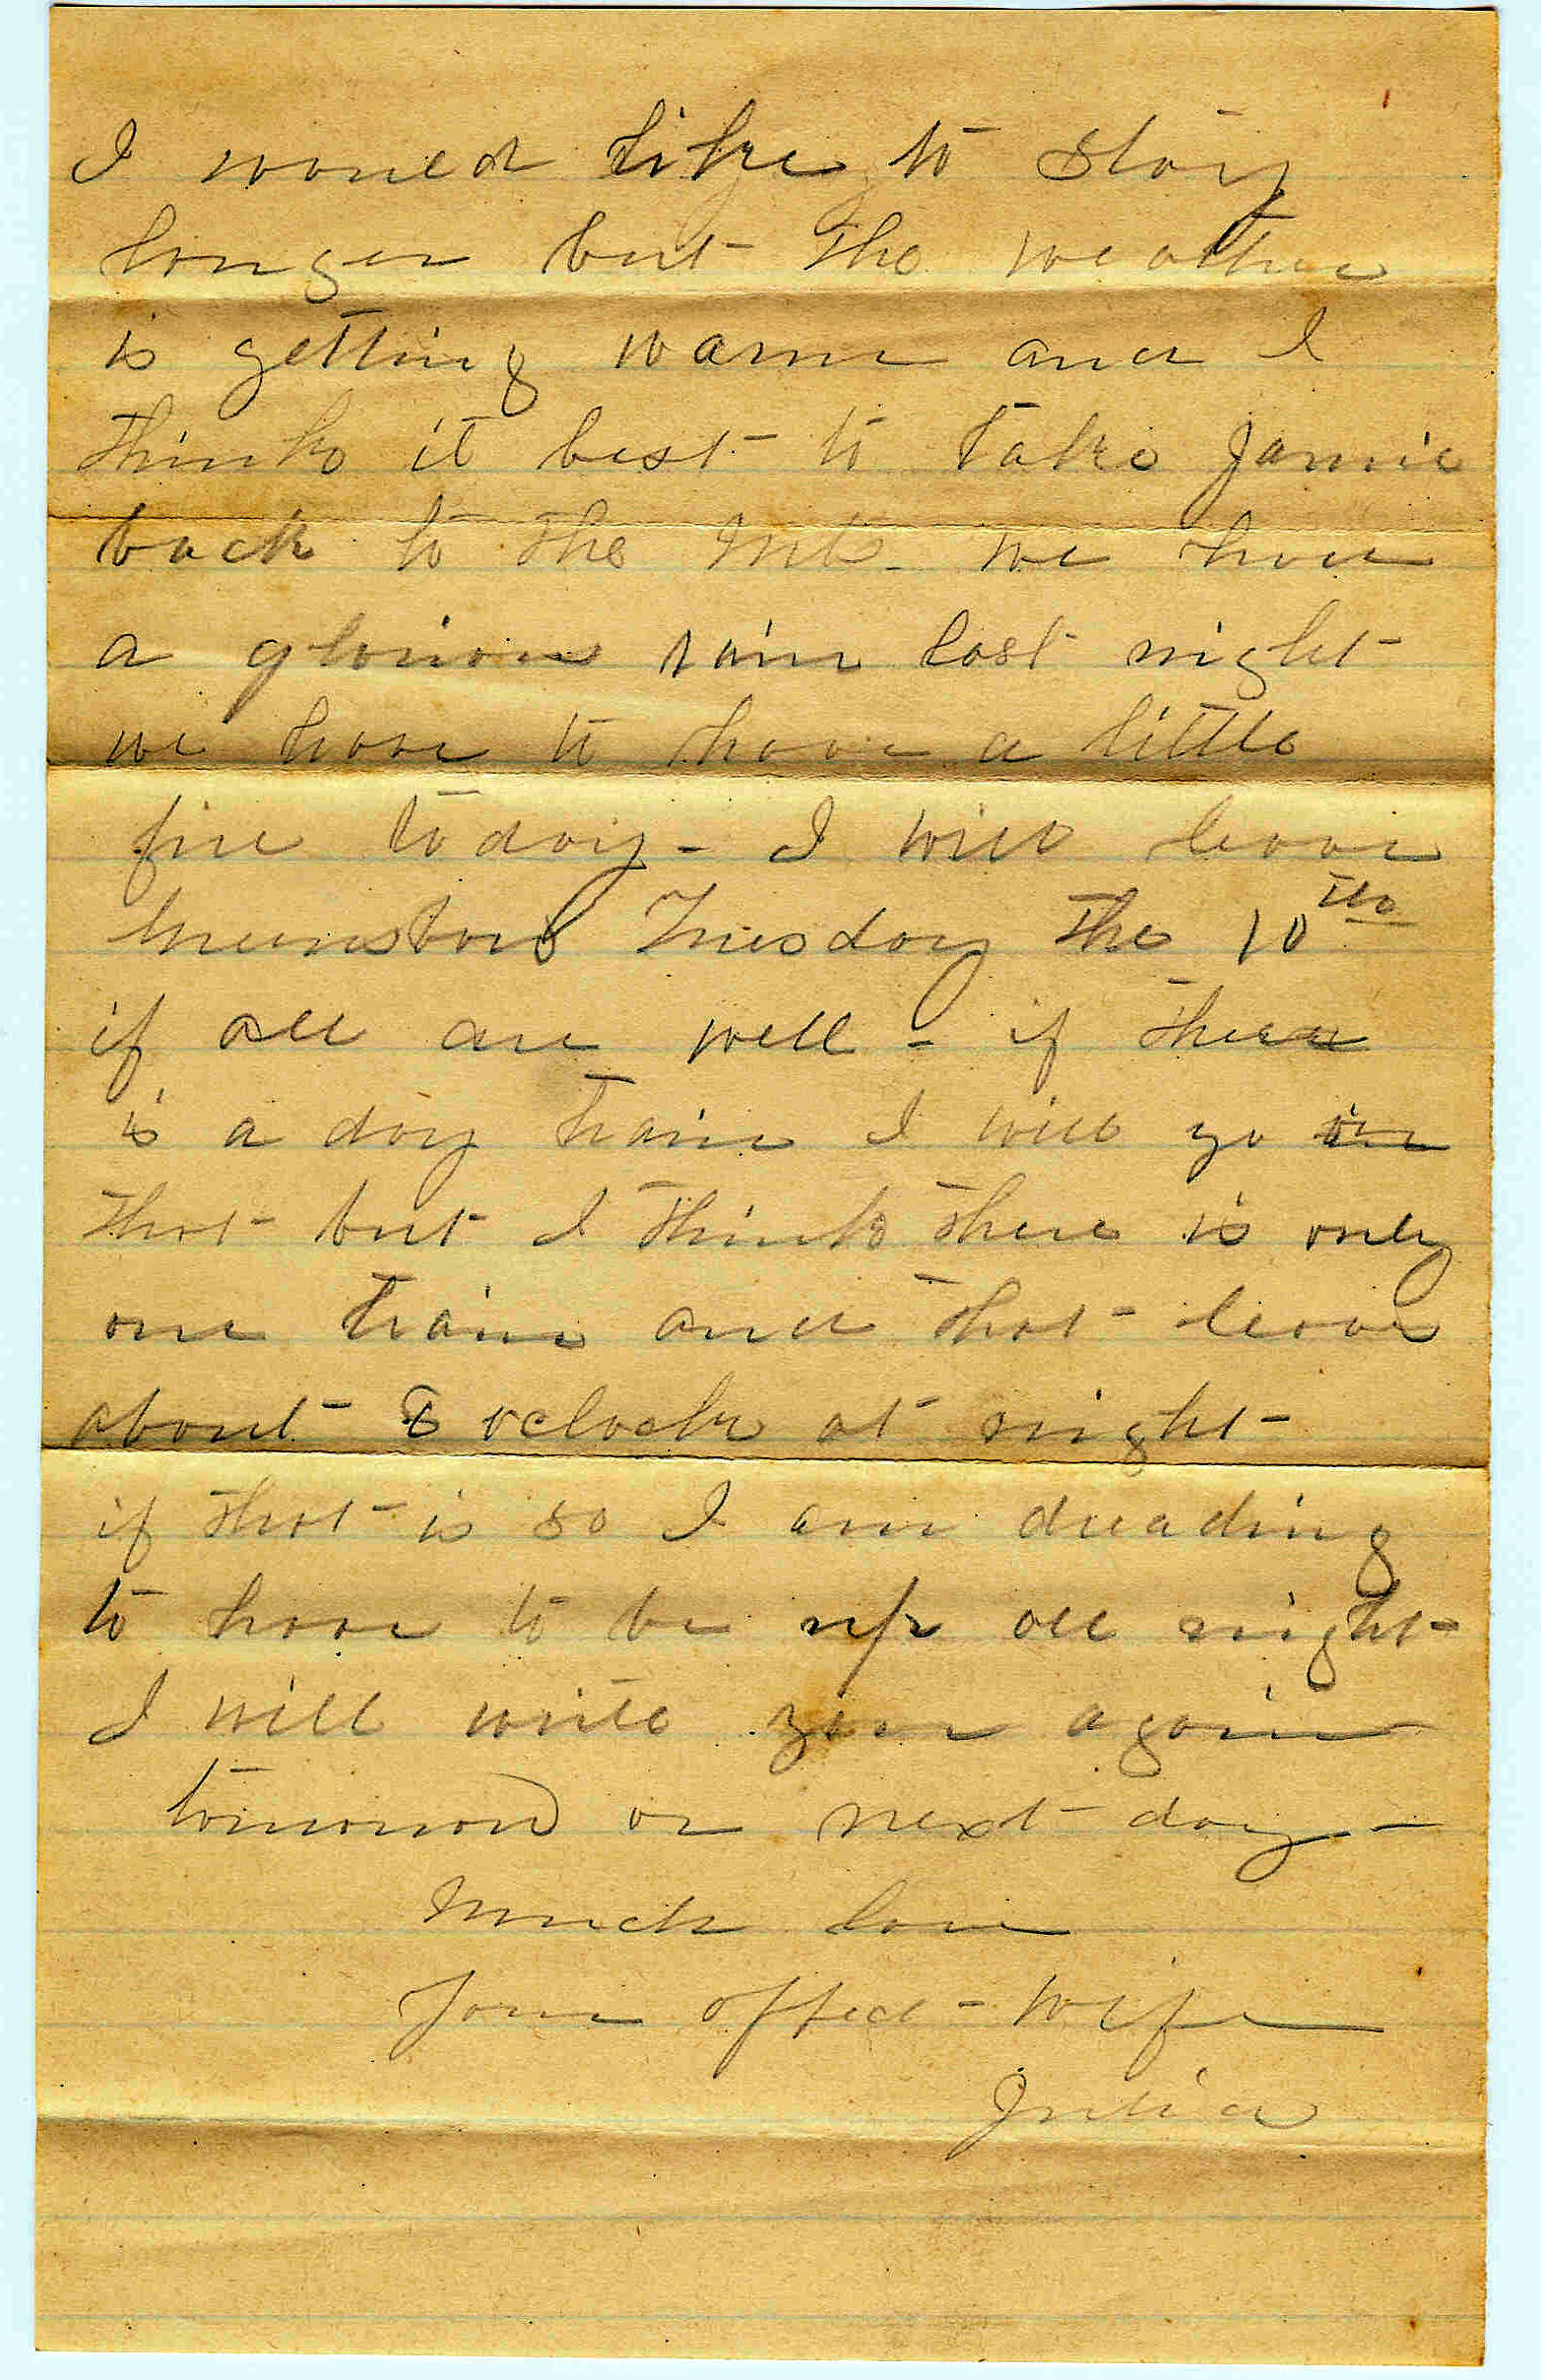 I would like to stay
longer but the weather
is getting warm and I
think it best to take Jamie
back to the Mts. we had
a glorious rain last night
we have to have a little
fire today - I will leave
Tuesday the 10th
if all are well - if there
is a day train I will go on
that but I think there is only
one train and that leaves
about 8 oclock at night -
if that is so I am dreading
to have to be up all night -
I will write you again
tomorrow or next day -
Much love
Your affect - wife
Julia